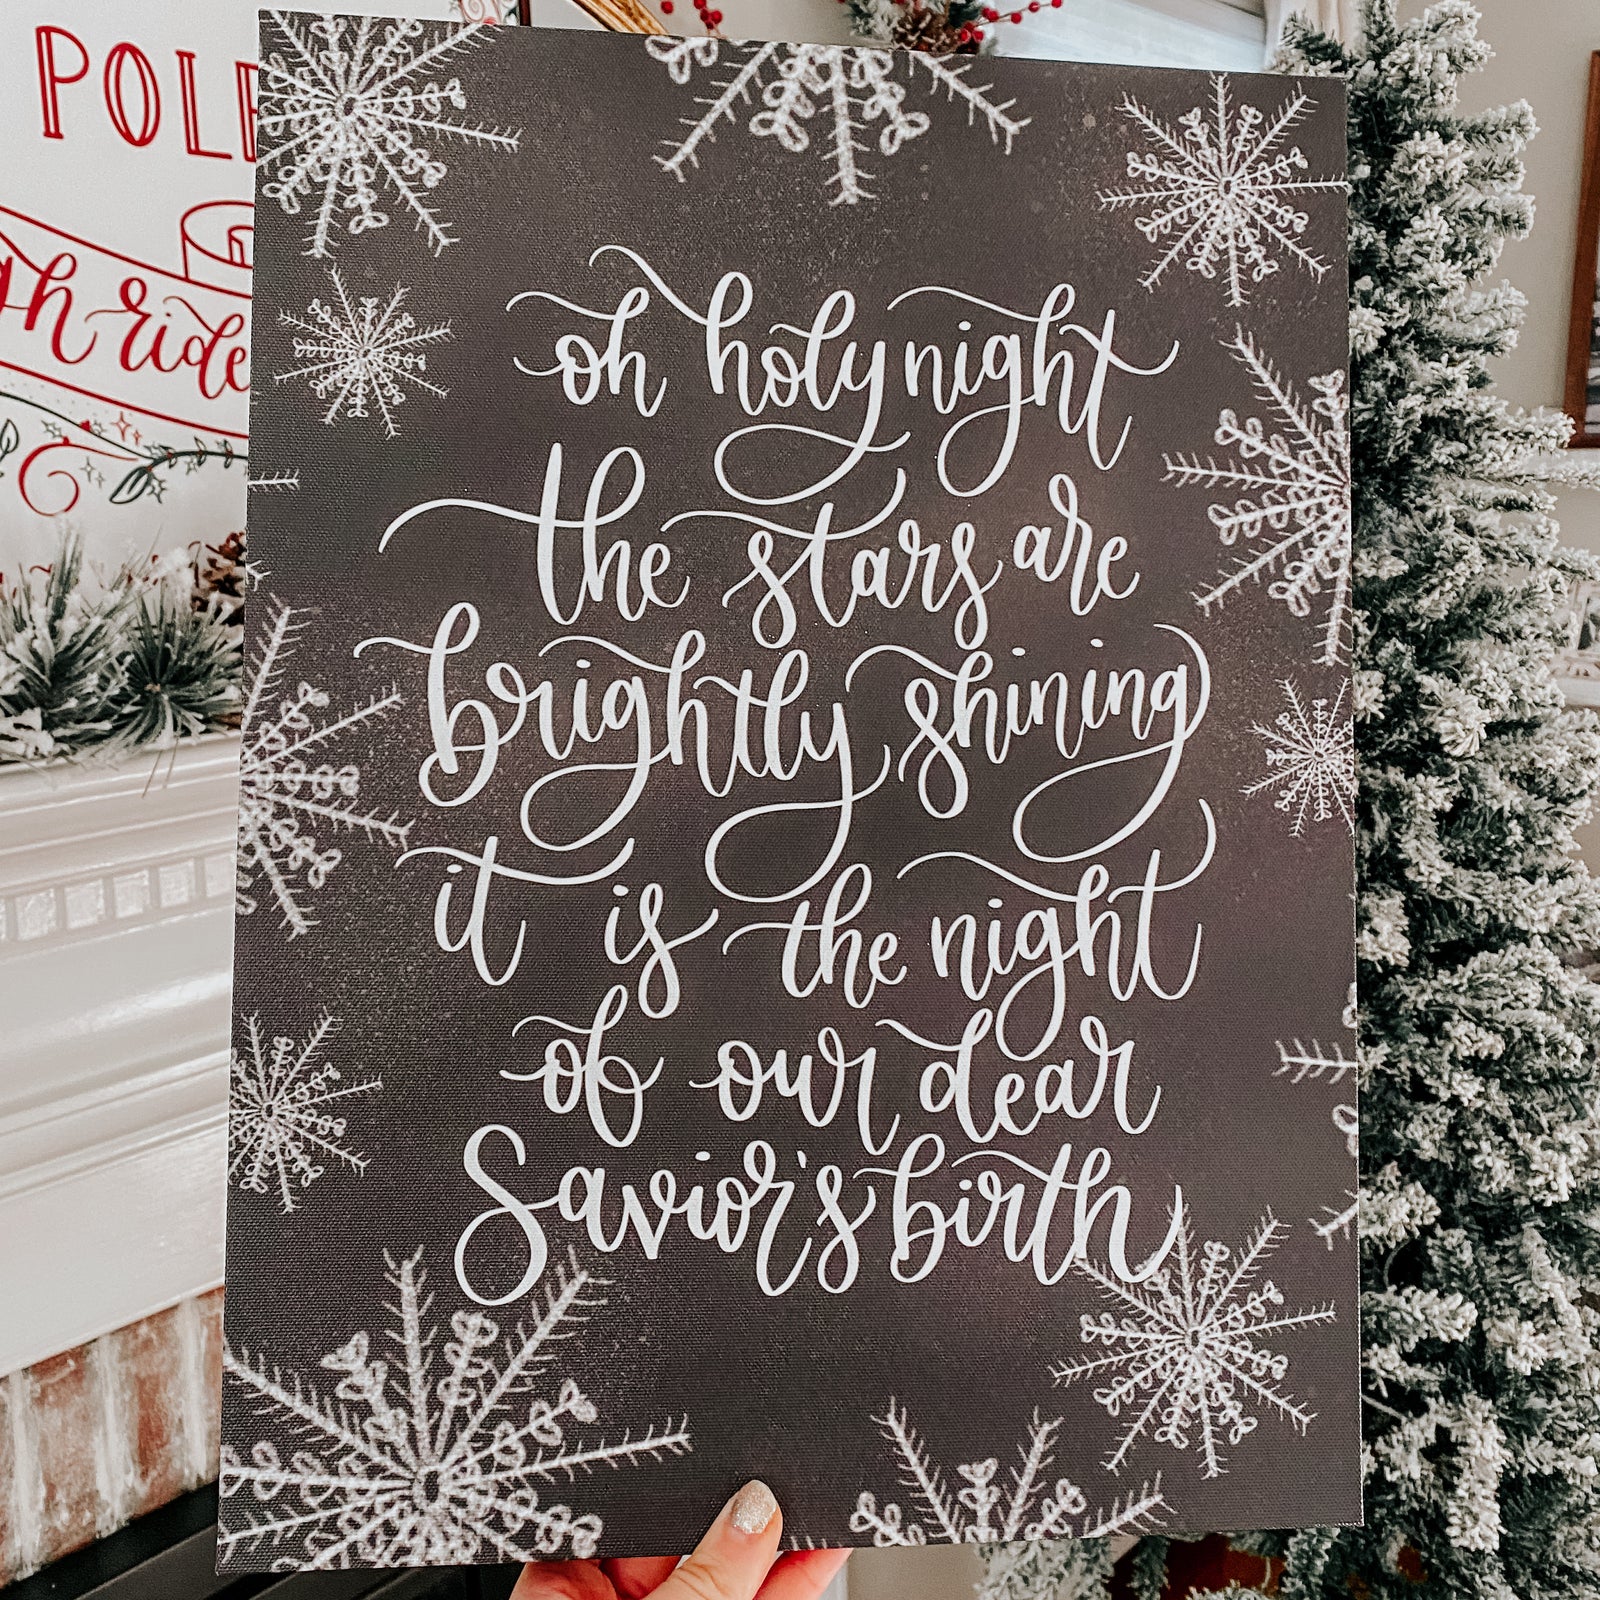 POLE
gh ride
oh holy night
the stars are
brightly shining
it is the night
of our dear
Savior's birth